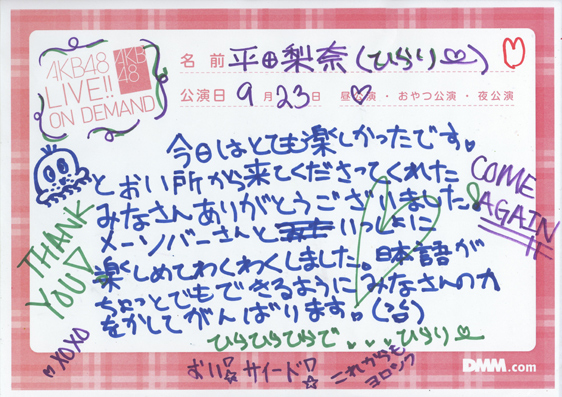 AKB48
LIVE!!
ON DEMAND
AKB
48
名前 平田梨奈(ひらり)
公演日 9月23日 昼公演・おやつ公演・夜公演
今日はとても楽しかったです。
とおい所から来てくださってくれた
みなさんありがとうございました。
メーンバーさんと いっしょに
楽しめてわくわくしました。日本語が
ちょっとでもできるようにみなさんの力
をかしてがんばります。(治)
THANK
YOU
COME
AGAIN
!!
XOXO
ひらひらひらで...ひらり
おい サイード
これからも
ヨロシク
DMM.com